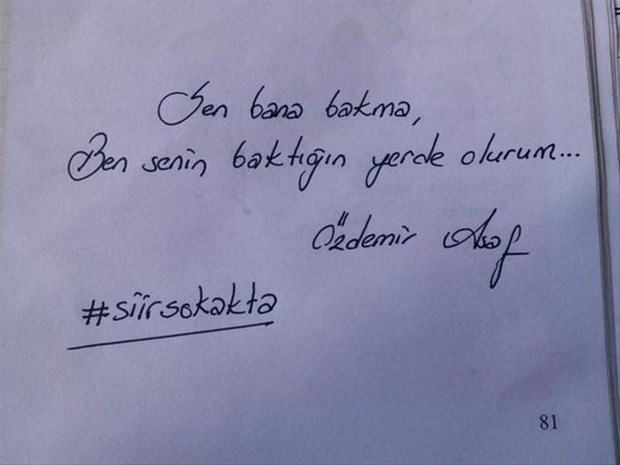 Sen bana bakma,
Ben senin baktığın yerde olurum...
Özdemir Asaf
#siirsokakta
81